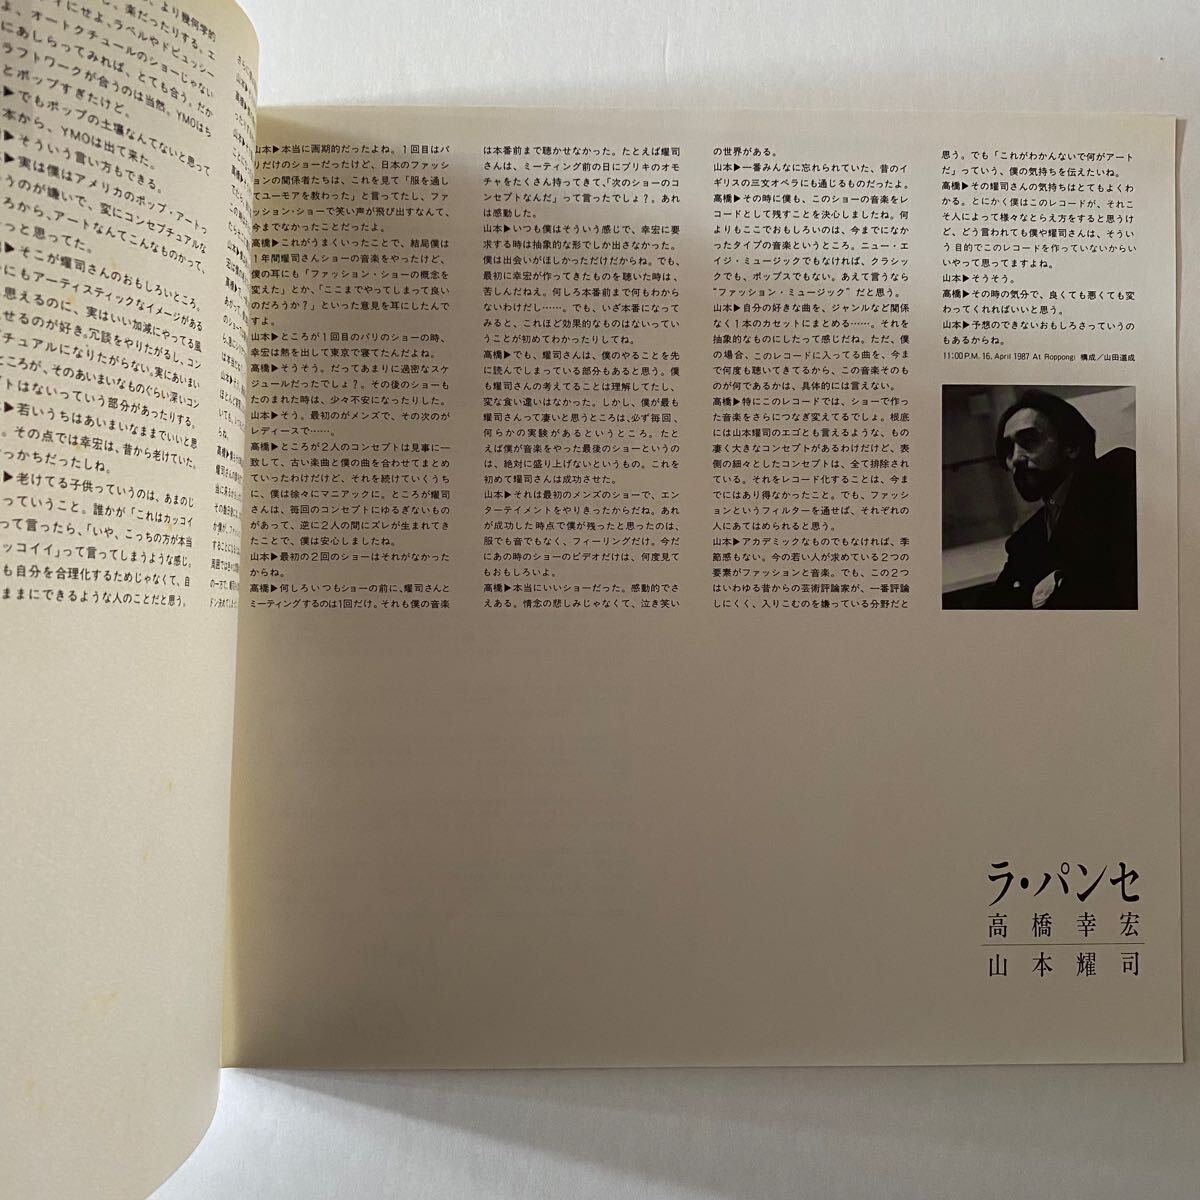 、より幾何学的
、楽だったりする。エ
イにせよ、ラベルやドビュッシー
、オートクチュールのショーじゃない
にあしらってみれば、とても合う。だか
ラフトワークが合うのは当然。YMOはち
とポップすぎたけど。
▶でもポップの土壌なんてないと思って
本から、YMOは出て来た。
▶そういう言い方もできる。
▶実は僕はアメリカのポップ・アートっ
うのが嫌いで、変にコンセプチュアルな
ろから、アートなんてこんなものかって、
っと思ってた。
▶そこが耀司さんのおもしろいところ。
にもアーティスティックなイメージがある
思えるのに、実はいい加減にやってる風
せるのが好き。冗談をやりたがるし、コン
チュアルになりたがらない。実にあいまい
ところが、そのあいまいなものぐらい深いコン
プトはないっていう部分があったりする。
▶若いうちはあいまいなままでいいと思
。その点では幸宏は、昔から老けていた。
っかちだったしね。
▶老けてる子供っていうのは、あまのじ
っていうこと。誰かが「これはカッコイ
って言ったら、「いや、こっちの方が本当
ッコイイ」って言ってしまうような感じ。
も自分を合理化するためじゃなくて、自
ままにできるような人のことだと思う。
山本▶本当に画期的だったよね。1回目はパ
リだけのショーだったけど、日本のファッシ
ョンの関係者たちは、これを見て「服を通し
てユーモアを教わった」と言ってたし、ファ
ッション・ショーで笑い声が飛び出すなんて、
今までなかったことだったよ。
高橋▶これがうまくいったことで、結局僕は
1年間耀司さんショーの音楽をやったけど、
僕の耳にも「ファッション・ショーの概念を
変えた」とか、「ここまでやってしまって良い
のだろうか?」といった意見を耳にしたんで
すよ。
山本▶ところが1回目のパリのショーの時、
幸宏は熱を出して東京で寝てたんだよね。
高橋▶そうそう。だってあまりに過密なスケ
ジュールだったでしょ?。その後のショーも
たのまれた時は、少々不安になったりした。
山本▶そう。最初のがメンズで、その次のが
レディースで……。
高橋▶ところが2人のコンセプトは見事に一
致して、古い楽曲と僕の曲を合わせてまとめ
ていったわけだけど、それを続けていくうち
に、僕は徐々にマニアックに。ところが耀司
さんは、毎回のコンセプトにゆるぎないもの
があって、逆に2人の間にズレが生まれてき
たことで、僕は安心しましたね。
山本▶最初の2回のショーはそれがなかった
からね。
高橋▶何しろいつもショーの前に、耀司さんと
ミーティングするのは1回だけ。それも僕の音楽
は本番前まで聴かせなかった。たとえば耀司
さんは、ミーティング前の日にブリキのオモ
チャをたくさん持ってきて、「次のショーのコ
ンセプトなんだ」って言ったでしょ?。あれ
は感動した。
山本▶いつも僕はそういう感じで、幸宏に要
求する時は抽象的な形でしか出さなかった。
僕は出会いがほしかっただけだからね。でも、
最初に幸宏が作ってきたものを聴いた時は、
苦しんだねえ。何しろ本番前まで何もわから
ないわけだし……。でも、いざ本番になって
みると、これほど効果的なものはないってい
うことが初めてわかったりしてね。
高橋▶でも、耀司さんは、僕のやることを先
に読んでしまっている部分もあると思う。僕
も耀司さんの考えてることは理解してたし、
変な食い違いはなかった。しかし、僕が最も
耀司さんって凄いと思うところは、必ず毎回、
何らかの実験があるというところ。たと
えば僕が音楽をやった最後のショーというの
は、絶対に盛り上げないというもの。これを
初めて耀司さんは成功させた。
山本▶それは最初のメンズのショーで、エン
ターテイメントをやりきったからだね。あれ
が成功した時点で僕が残ったと思ったのは、
服でも音でもなく、フィーリングだけ。今だ
にあの時のショーのビデオだけは、何度見て
もおもしろいよ。
高橋▶本当にいいショーだった。感動的でさ
えある。情念の悲しみじゃなくて、泣き笑い
の世界がある。
山本▶一番みんなに忘れられていた、昔のイ
ギリスの三文オペラにも通じるものだったよ。
高橋▶その時に僕も、このショーの音楽をレ
コードとして残すことを決心しましたね。何
よりもここでおもしろいのは、今までになか
ったタイプの音楽というところ。ニュー・エ
イジ・ミュージックでもなければ、クラシッ
クでも、ポップスでもない。あえて言うなら
“ファッション・ミュージック”だと思う。
山本▶自分の好きな曲を、ジャンルなど関係
なく1本のカセットにまとめる……。それを
抽象的なものにしたって感じだね。ただ、僕
の場合、このレコードに入ってる曲を、今ま
で何度も聴いてきてるから、この音楽そのも
のが何であるかは、具体的には言えない。
高橋▶特にこのレコードでは、ショーで作っ
た音楽をさらにつなぎ変えてるでしょ。根底
には山本耀司のエゴとも言えるような、もの
凄く大きなコンセプトがあるわけだけど、表
側の細々としたコンセプトは、全て排除され
ている。それをレコード化することは、今ま
でにはあり得なかったこと。でも、ファッシ
ョンというフィルターを通せば、それぞれの
人にあてはめられると思う。
山本▶アカデミックなものでもなければ、季
節感もない。今の若い人が求めている2つの
要素がファッションと音楽。でも、この2つ
はいわゆる昔からの芸術評論家が、一番評論
しにくく、入りこむのを嫌っている分野だと
思う。でも「これがわかんないで何がアート
だ」っていう、僕の気持ちを伝えたいね。
高橋▶その耀司さんの気持ちはとてもよくわ
かる。とにかく僕はこのレコードが、それこ
そ人によって様々なとらえ方をすると思うけ
ど、どう言われても僕や耀司さんは、そうい
う目的でこのレコードを作っていないからい
いやって思ってますよね。
山本▶そうそう。
高橋▶その時の気分で、良くても悪くても変
わってくれればいいと思う。
山本▶予想のできないおもしろさっていうの
もあるからね。
11:00P.M. 16. April 1987 At Roppongi 構成/山田道成
ラ・パンセ
高橋幸宏
山本耀司